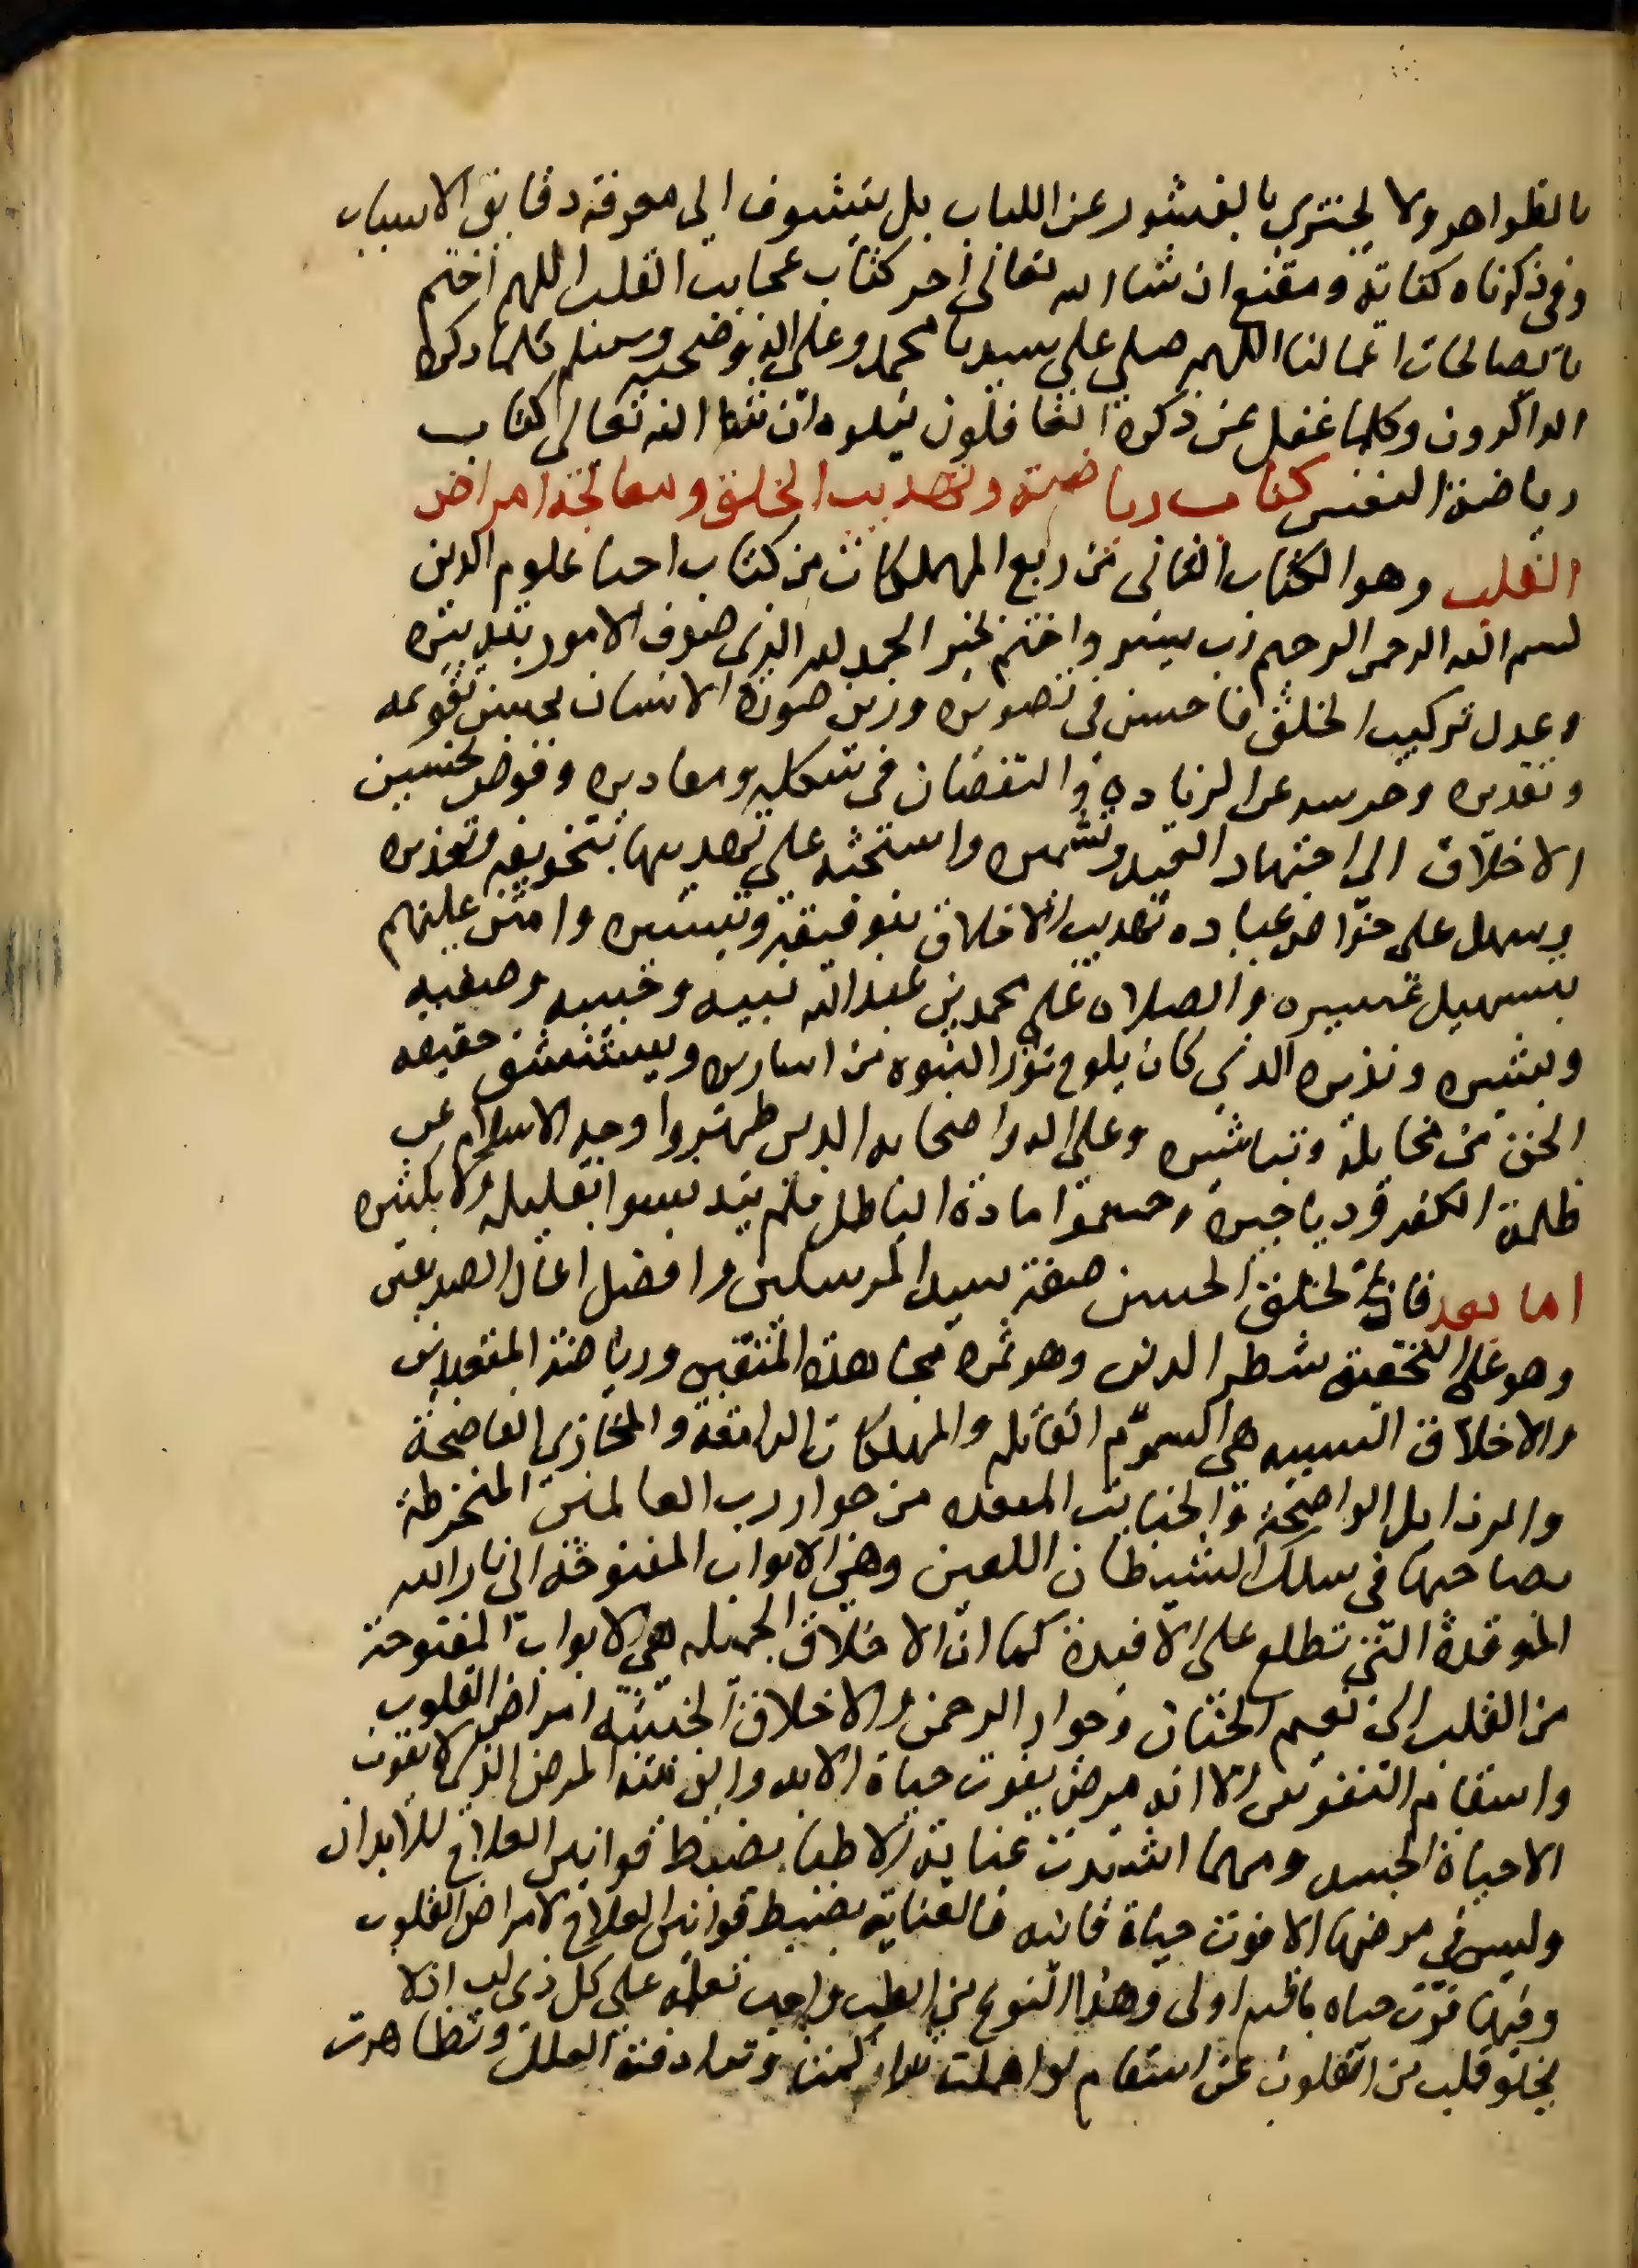 بالظواهر ولا يجتزي بالقشور عن اللباب بل يتشوف الى معرفة دقايق الاسباب
وفى ذكرناه كفاية ومقنع ان شاء الله تعالى اخر كتاب عجايب القلب اللهم اختم
بالصالحات اعمالنا اللهم صلى على سيدنا محمد وعلى اله وصحبه وسلم كلما ذكره
الذاكرون وكلما غفل عن ذكره الغافلون يتلوه ان شاء الله تعالى كتاب
رياضة النفس كتاب رياضة وتهذيب الخلق ومعالجة امراض
القلب وهو الكتاب الثانى من ربع المهلكات من كتاب احيا علوم الدين
بسم الله الرحمن الرحيم رب يسر واختم بخير الحمد لله الذى صرف الامور بتدبيره
وعدل تركيب الخلق فاحسن فى تصويره وزين صورة الانسان بحسن تقويمه
وتقديره وحرسه عن الزيادة والنقصان فى شكله ومقاديره وفوض تحسين
الاخلاق الى اجتهاد العبد وتشميره واستحثه على تهذيبها بتخويفه وتحذيره
وسهل على خواص عباده تهذيب الاخلاق بتوفيقه وتيسيره وامتن عليهم
بتسهيل عسيره والصلاة على محمد بن عبد الله نبيه وحبيبه وصفيه
وبشيره ونذيره الذى كان يلوح نور النبوه من اساريره ويستشف حقيقه
الحق من مخايله وتباشيره وعلى اله واصحابه الذين طهروا وجه الاسلام عن
ظلمة الكفر ودياجيره وحسموا مادة الباطل فلم يتدنسوا بقليله ولا بكثيره
اما بعد فان الخلق الحسن صفة سيد المرسلين وافضل اعمال الصديقين
وهو على التحقيق شطر الدين وهو ثمره مجاهدة المتقين ورياضة المتعبدين
والاخلاق السييه هى السموم القاتله والمهلكات الدامغة والمخازى الفاضحة
والرذايل الواضحة والخبايث المبعده من جوار رب العالمين المنخرطة
بصاحبها فى سلك الشيطان اللعين وهى الابواب المفتوحة الى نار الله
الموقدة التى تطلع على الافيدة كما ان الاخلاق الجميله هى الابواب المفتوحة
من القلب الى نعيم الجنان وجوار الرحمن والاخلاق الخبيثه امراض القلوب
واسقام النفوس الا انه مرض يفوت حياة الابد واين منه المرض الذى لا يفوت
الا حياة الجسد ومهما اشتدت عناية الاطبا بضبط قوانين العلاج للابدان
وليس فى مرضها الا فوت حياة فانيه فالعناية بضبط قوانين العلاج لامراض القلوب
وفيها فوت حياه باقيه اولى وهذا النوع من الطب واجب تعلمه على كل ذى لب اذ لا
يخلو قلب من القلوب عن اسقام لو اهملت تراكمت وترادفت العلل وتظاهرت